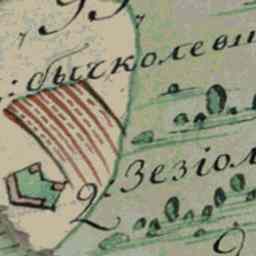 „99„
: бычколеви
2: Зезіол
9